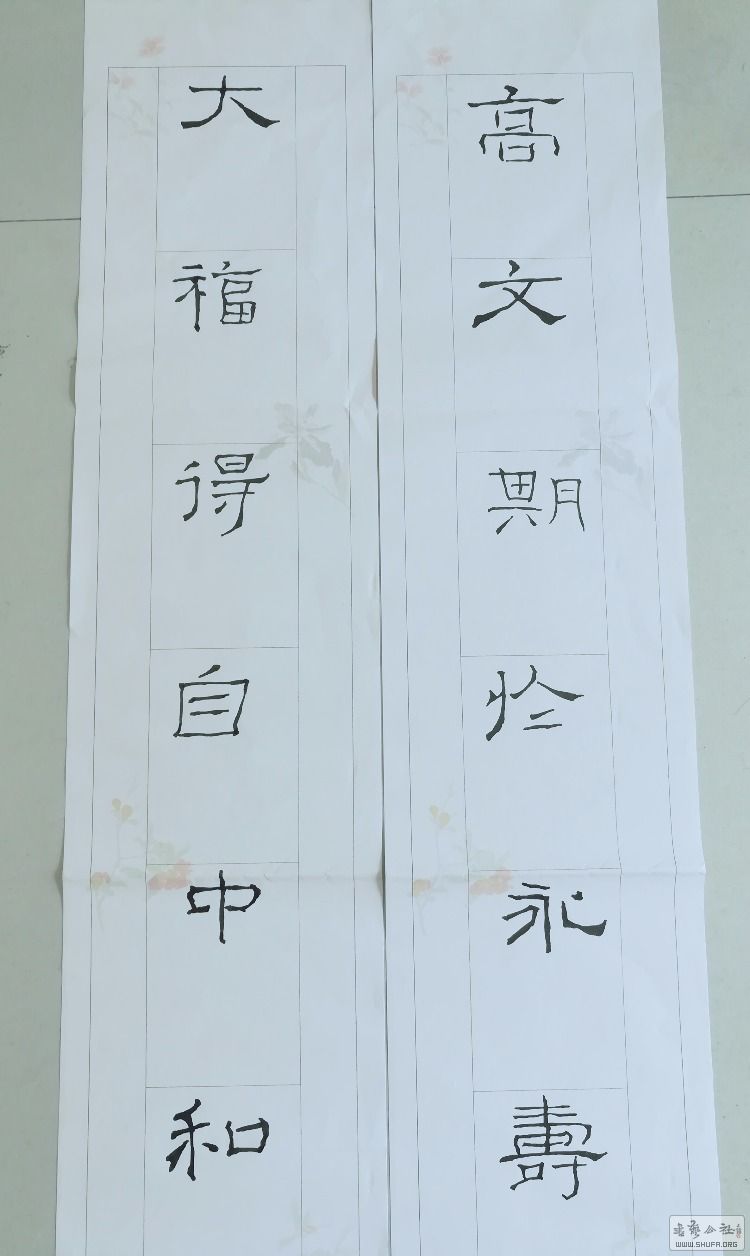 高文期於永壽
大福得自中和
書藝公社
WWW.SHUFA.ORG